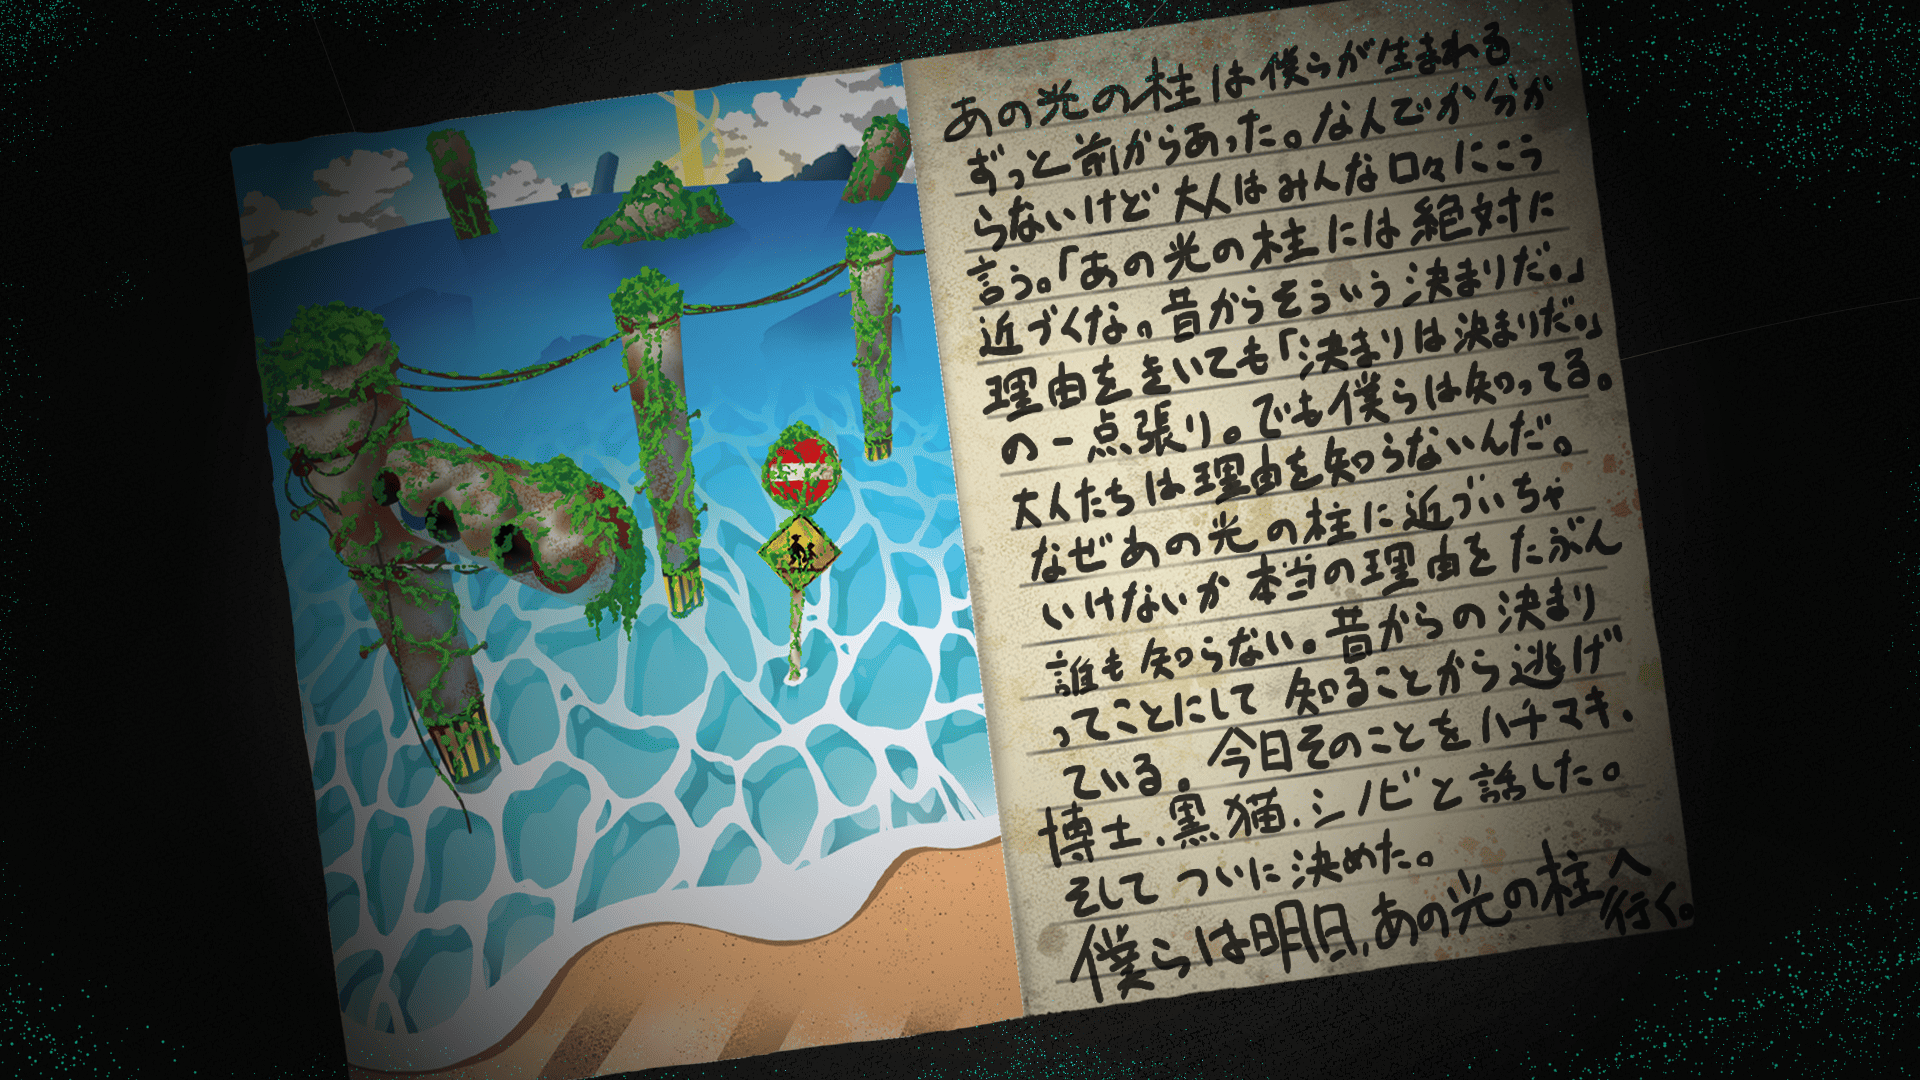 あの光の柱は僕らが生まれる
ずっと前からあった。なんでか分か
らないけど大人はみんな口々にこう
言う。「あの光の柱には絶対に
近づくな。昔からそういう決まりだ。」
理由をきいても「決まりは決まりだ。」
の一点張り。でも僕らは知ってる。
大人たちは理由を知らないんだ。
なぜあの光の柱に近づいちゃ
いけないか本当の理由をたぶん
誰も知らない。昔からの決まり
ってことにして知ることから逃げ
ている。今日そのことをハチマキ、
博士、黒猫、シノビと話した。
そしてついに決めた。
僕らは明日、あの光の柱へ行く。